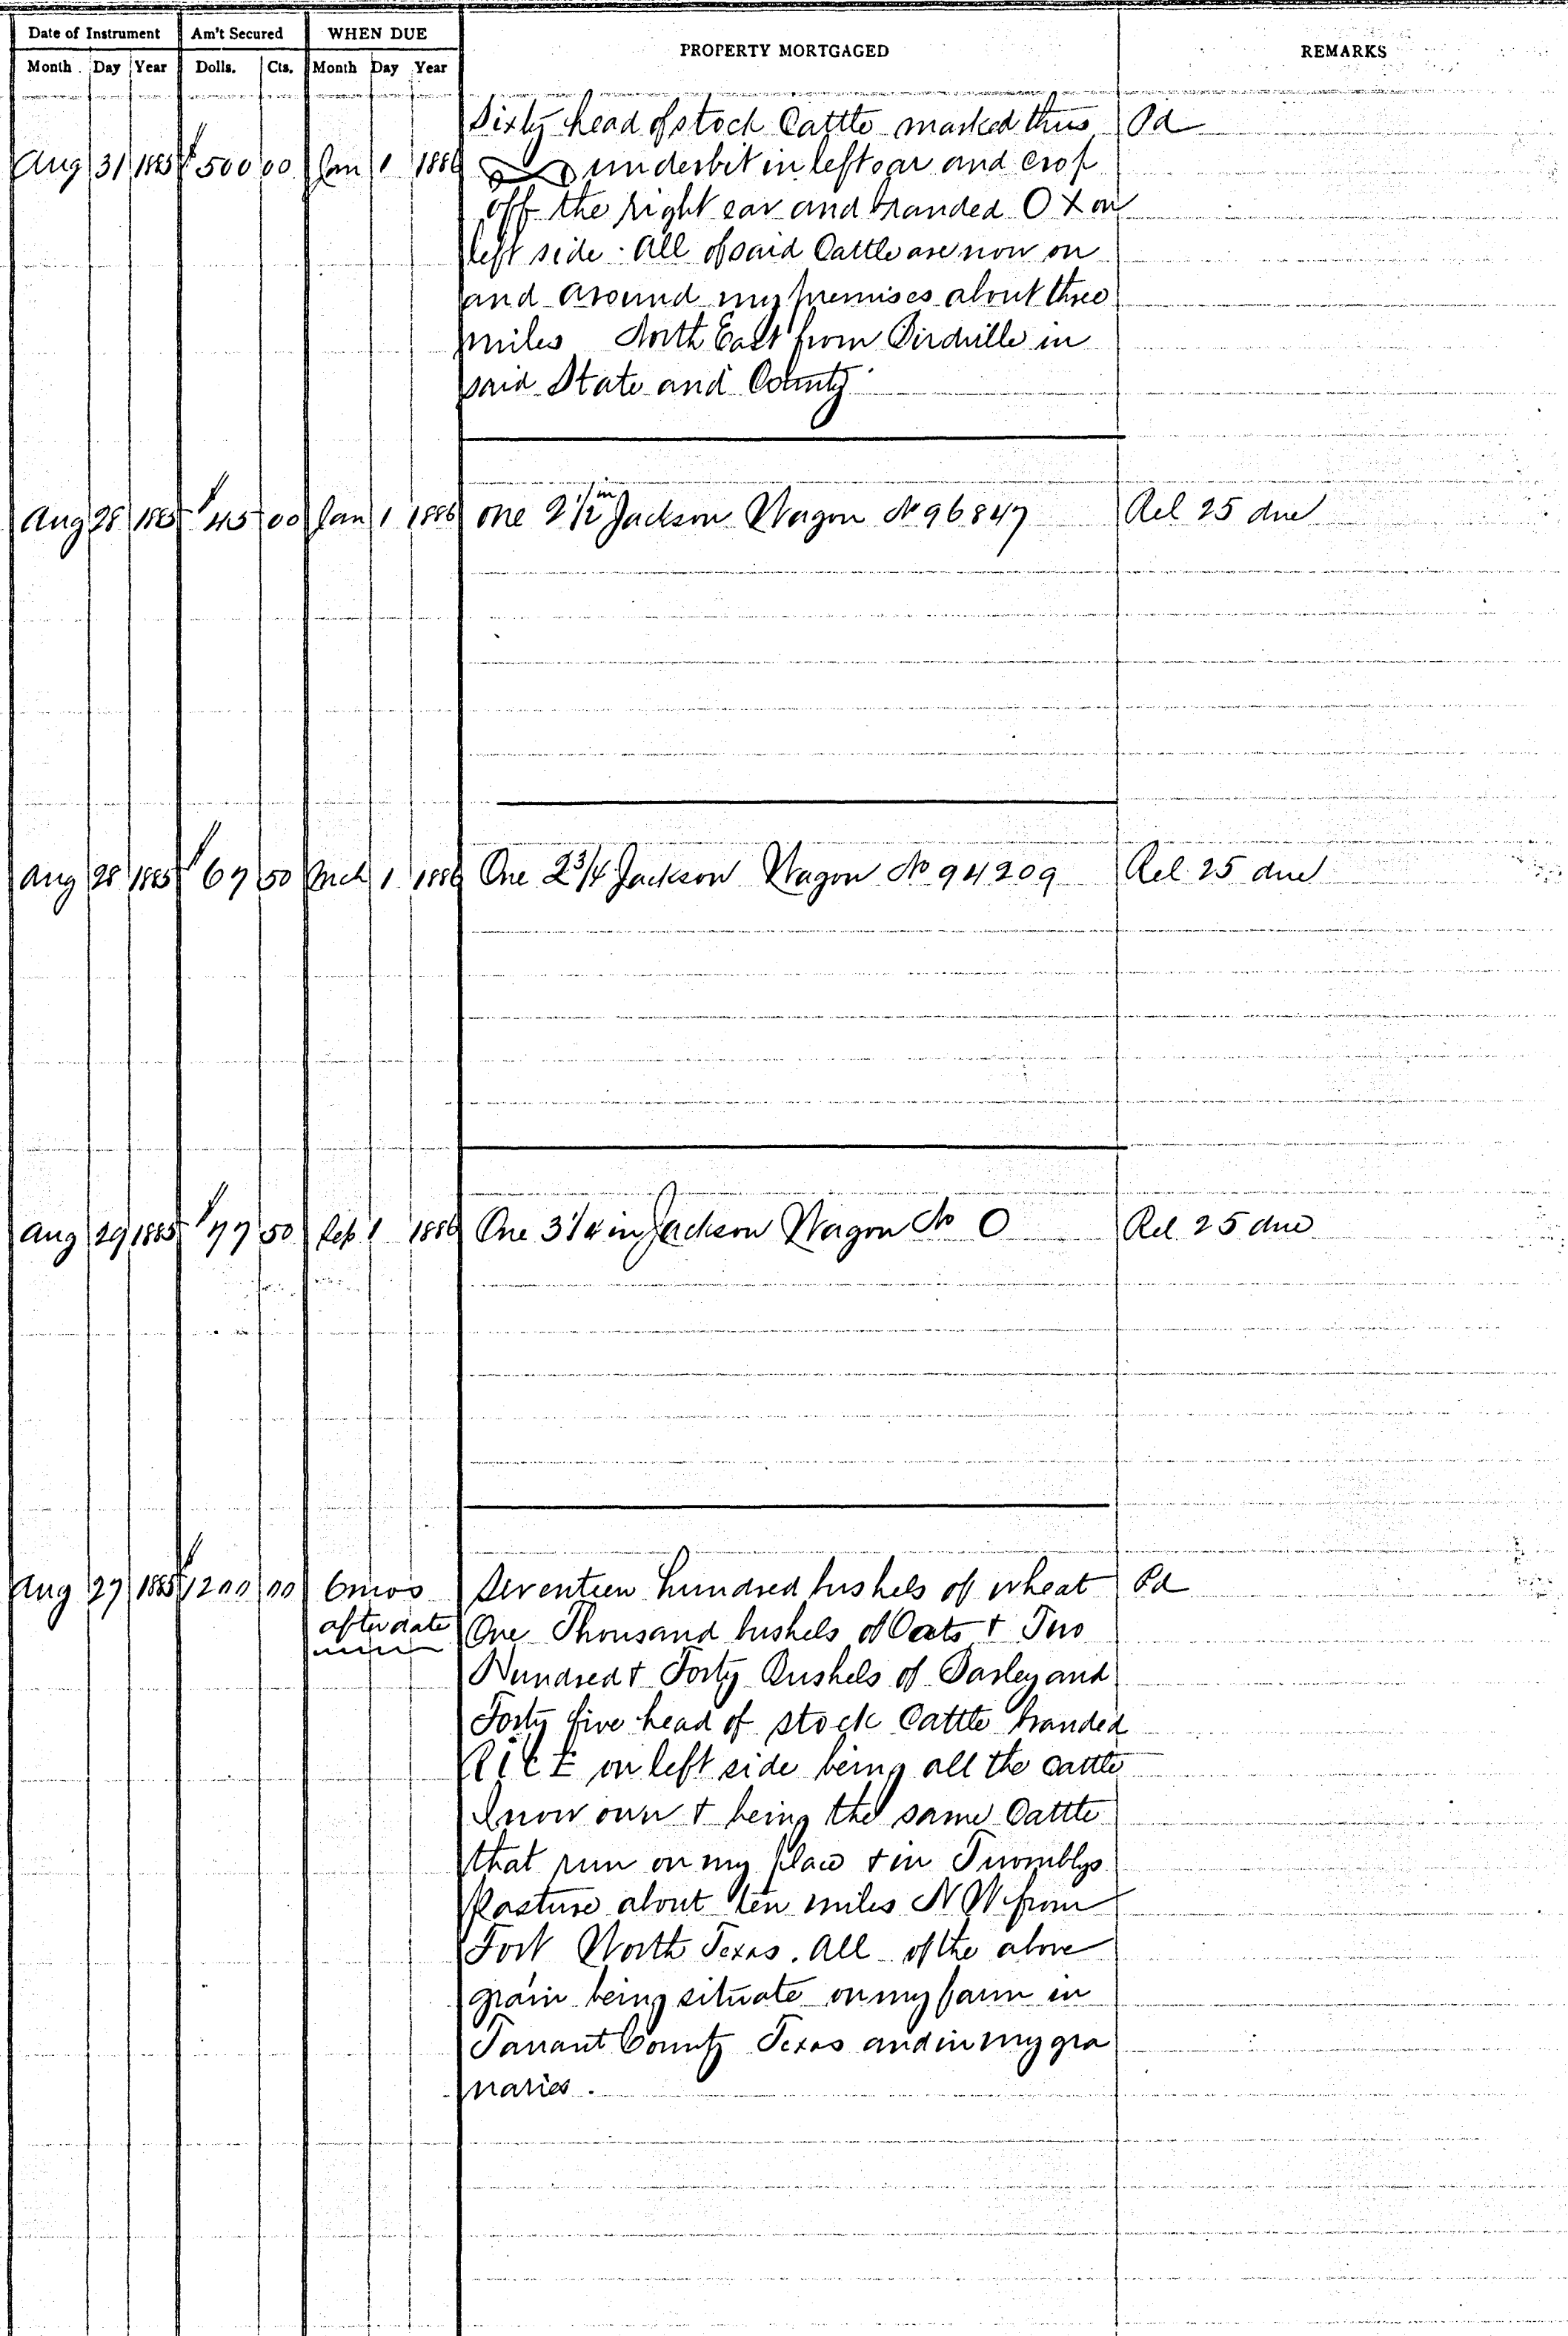 Date of Instrument Am't Secured WHEN DUE PROPERTY MORTGAGED REMARKS
Month Day Year Dolls. Cts. Month Day Year
Sixty head of stock Cattle marked thus Pd
Aug 31 1885 $500 00 Jan 1 1886 underbit in left ear and crop
off the right ear and branded O X on
left side. All of said Cattle are now on
and around my premises about three
miles North East from Birdville in
said State and County
Aug 28 1885 $45 00 Jan 1 1886 one 2 1/2 in Jackson Wagon No 96847 Rel 25 due
Aug 28 1885 $67 50 Mch 1 1886 One 2 3/4 Jackson Wagon No 94209 Rel 25 due
Aug 29 1885 $77 50 1 1886 One 3 1/4 in Jackson Wagon No O Rel 25 due
Aug 27 1885 $1200 00 6 mos Seventeen hundred bushels of wheat Pd
after date One Thousand bushels of Oats + Two
Hundred + Forty Bushels of Barley and
Forty five head of stock Cattle branded
RICE on left side being all the cattle
I now own + being the same Cattle
that run on my place + in Twomblys
Pasture about ten miles N W from
Fort Worth Texas. All of the above
grain being situate on my farm in
Tarrant County Texas and in my gra
naries.